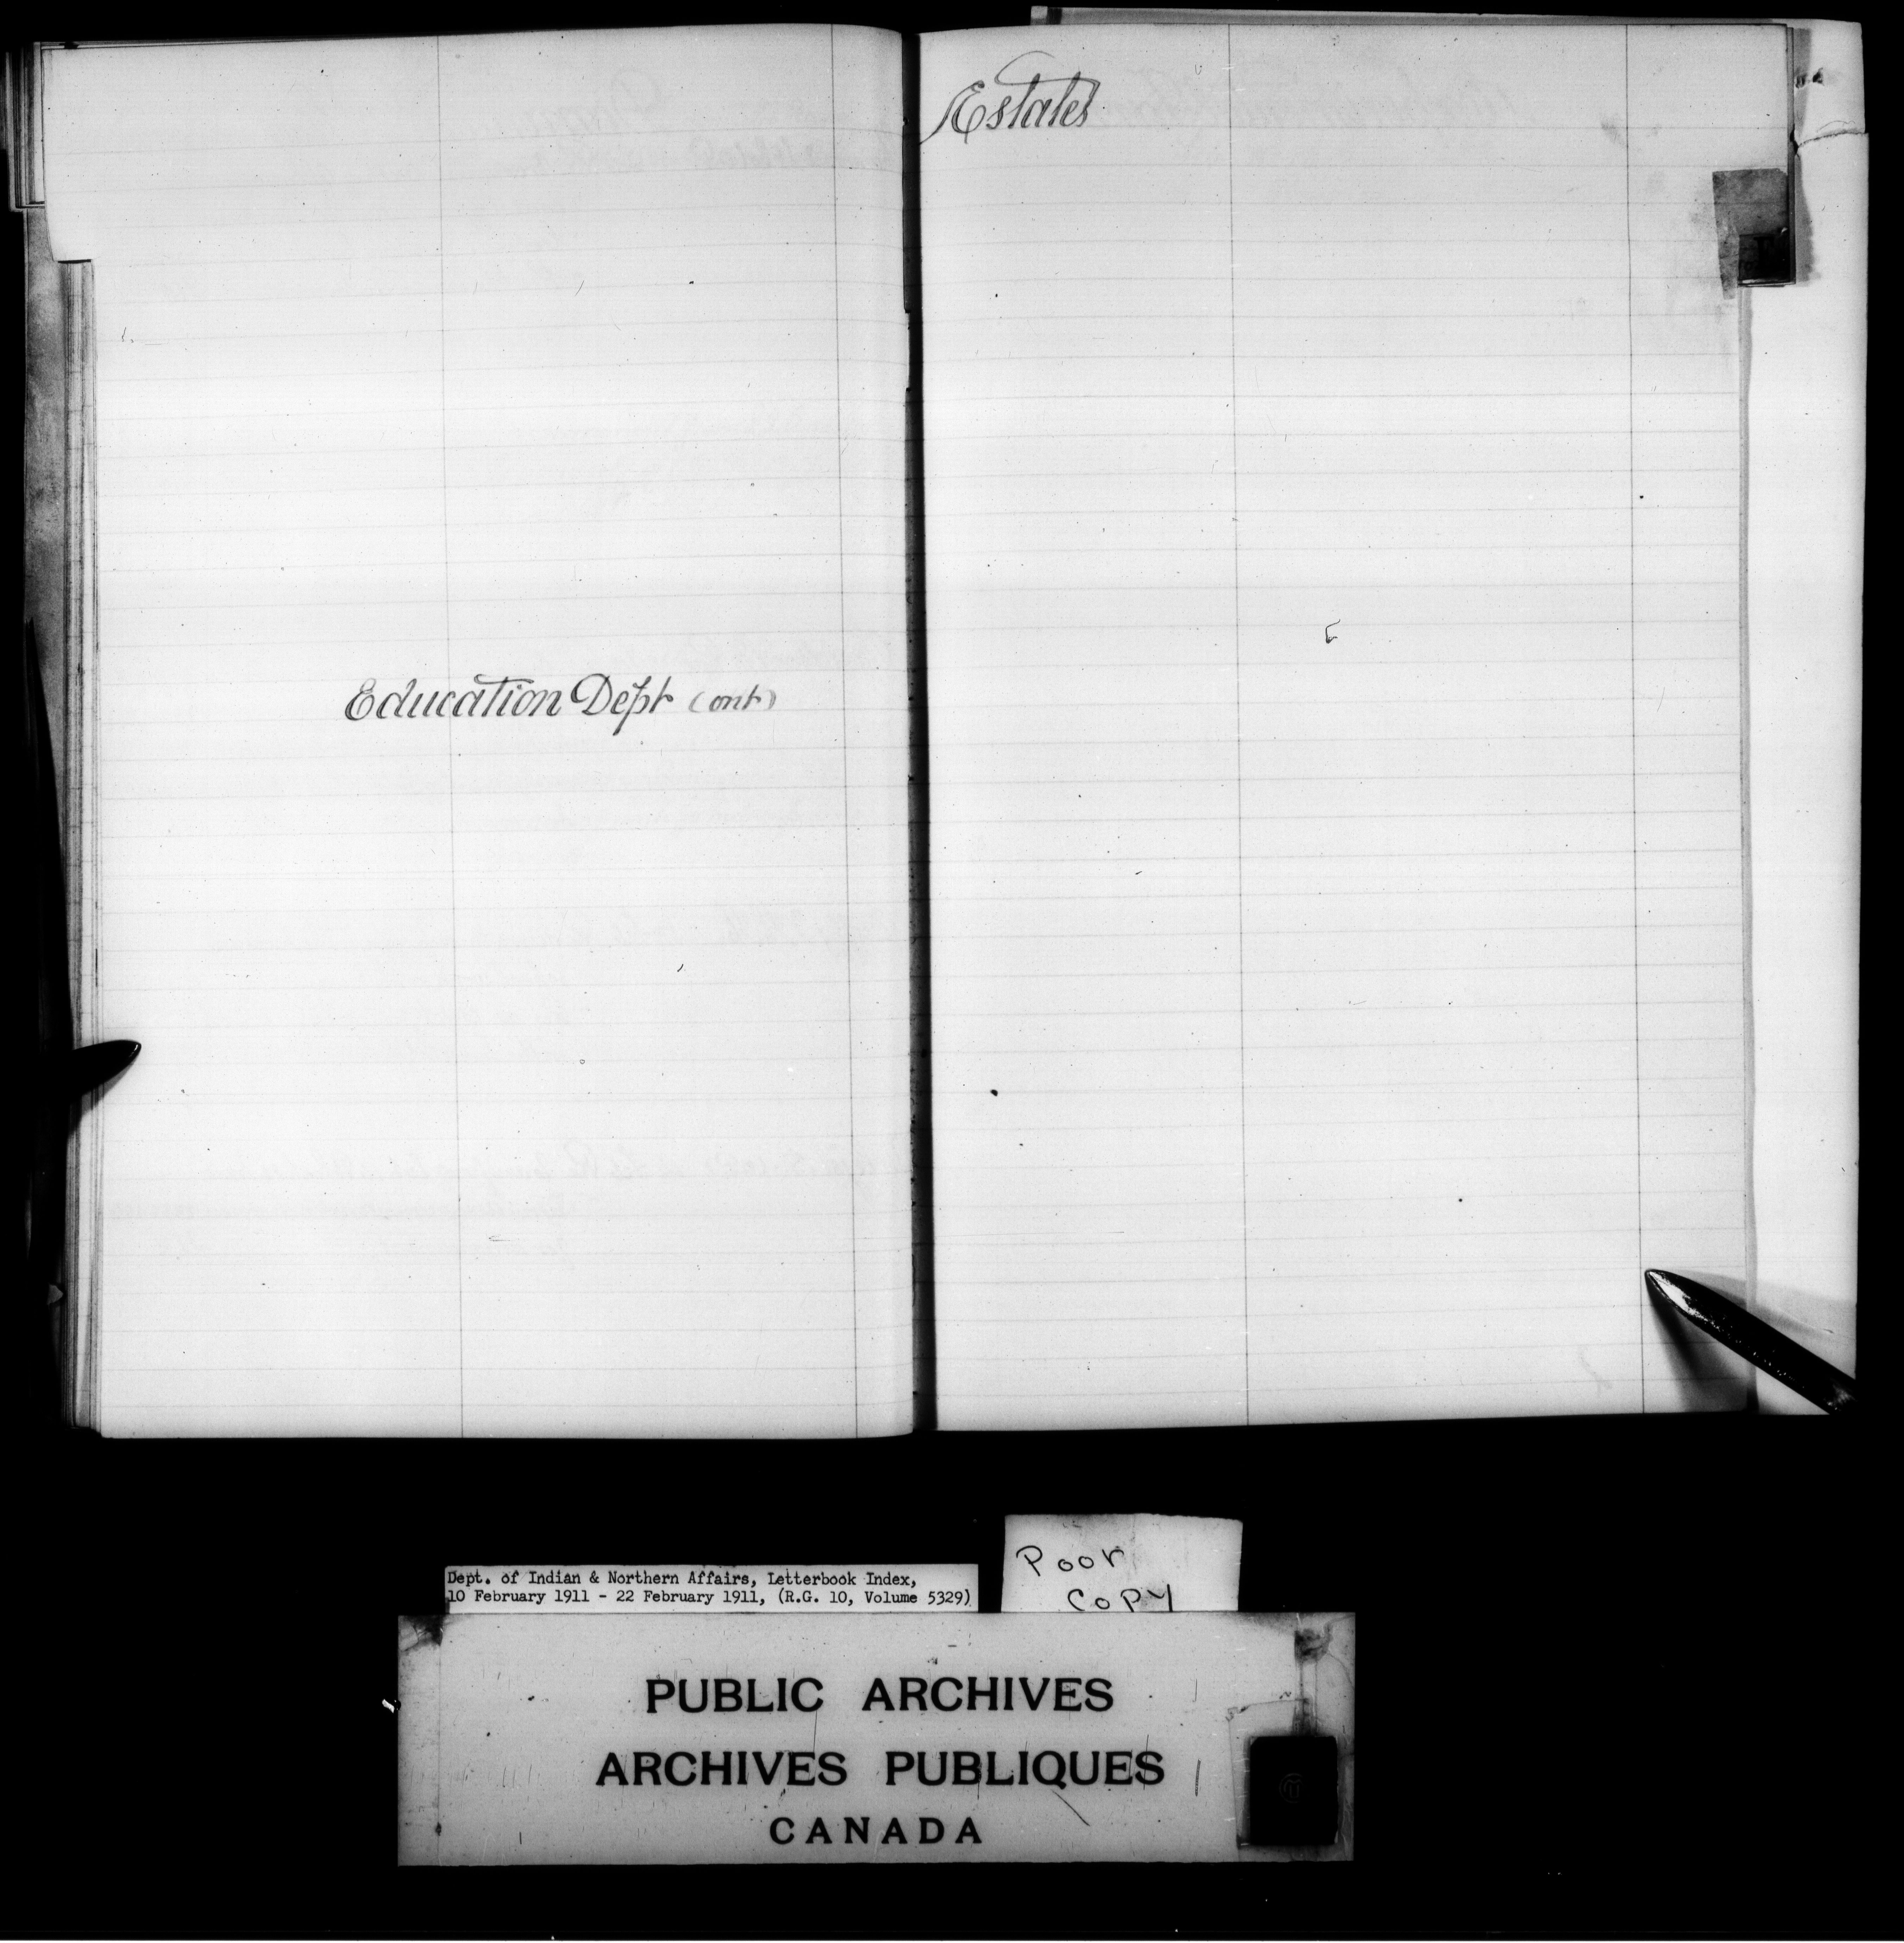 Estates
Education Dept (Ont)
Poor
Copy
Dept. of Indian & Northern Affairs, Letterbook Index,
10 February 1911 - 22 February 1911, (R.G. 10, Volume 5329)
PUBLIC ARCHIVES
ARCHIVES PUBLIQUES
CANADA